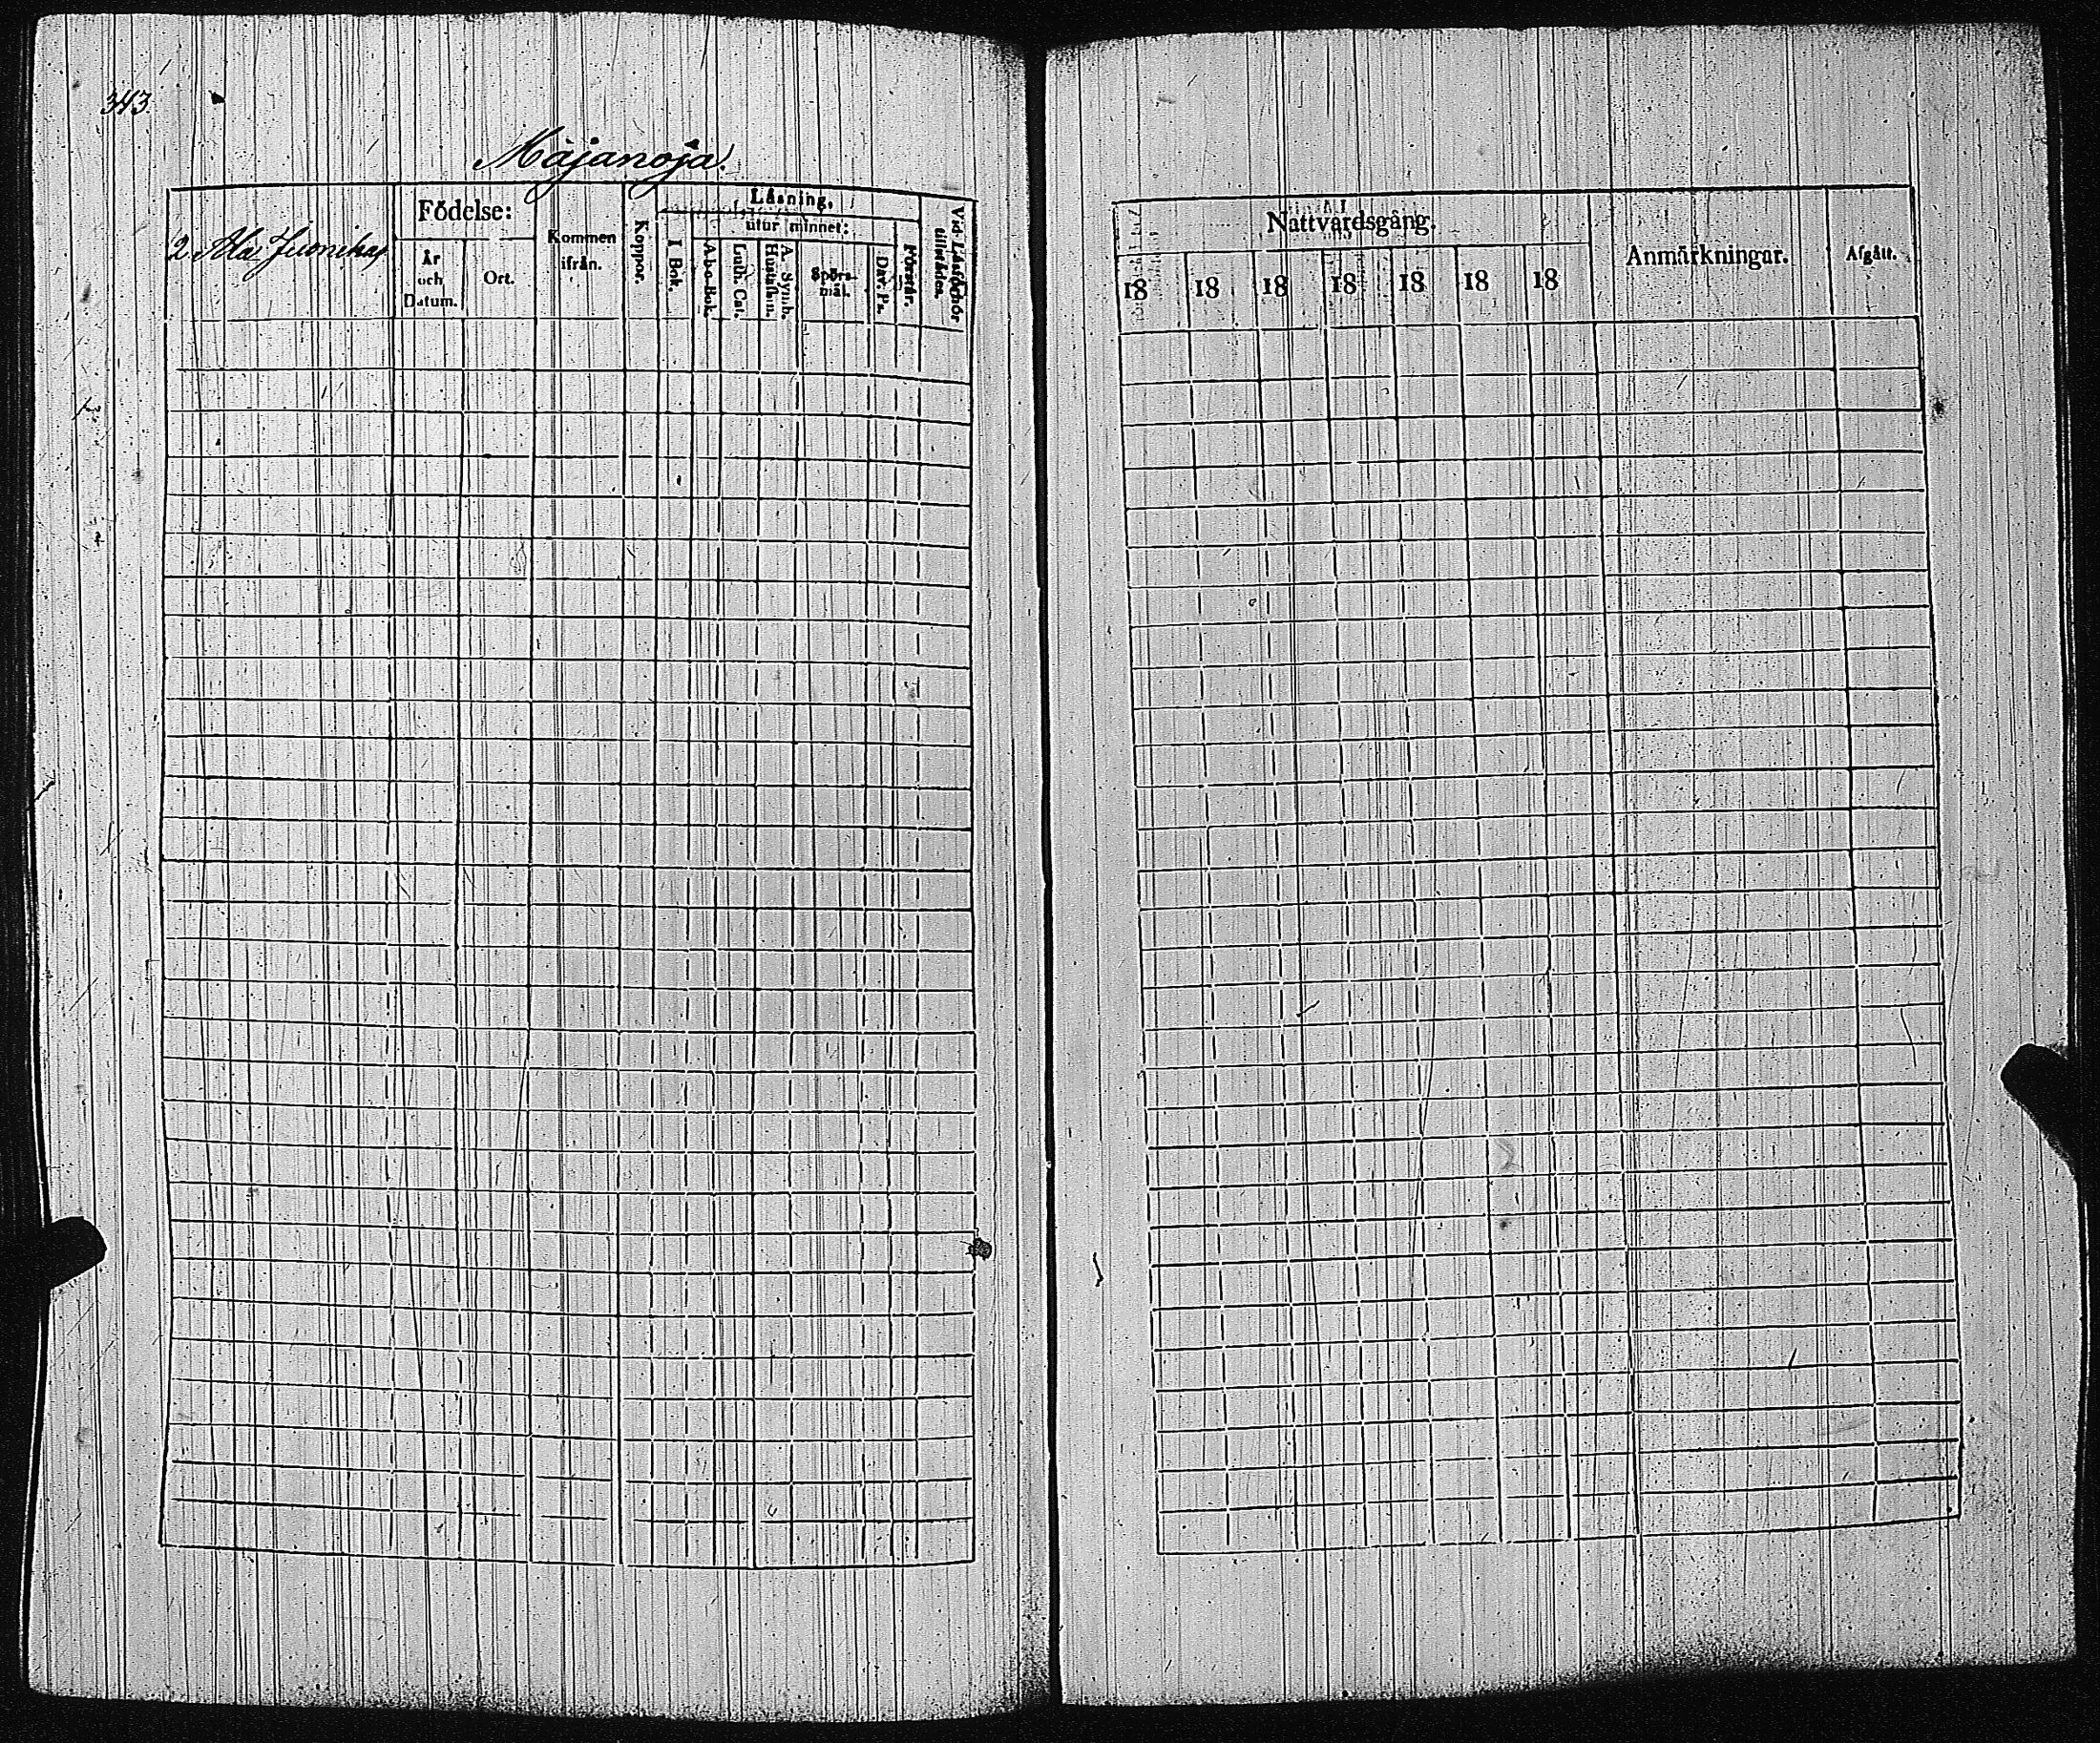 343.
Majanoja.
2 Ala
Födelse:
År
och
Datum.
Ort.
Kommen
ifrån.
Koppor.
Läsning,
I Bok.
utur minnet:
A-b-c-Bok.
Luth. Cat.
A. Symb.
Hustafln.
Spörs-
mål.
Dav. Ps.
Förstår.
Vid Läsförhör
tillstädes.
Nattvardsgång.
18 18 18 18 18 18 18
Anmärkningar.
Afgått.